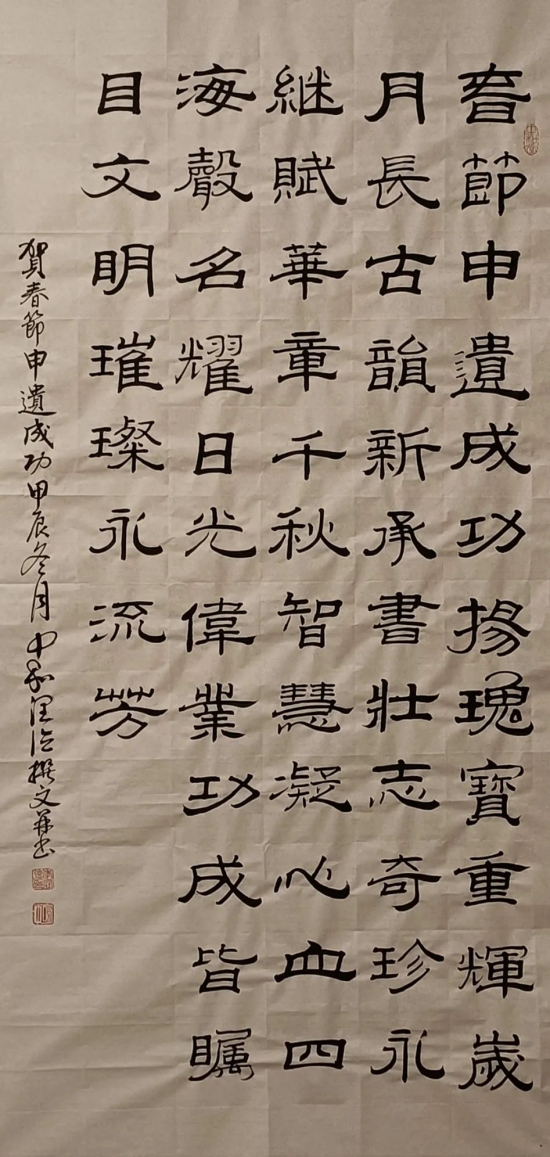 春節申遺成功揚瑰寶重輝歲
月長古韻新承書壯志奇珍永
继賦華章千秋智慧凝心血四
海聲名耀日光偉業功成皆矚
目文明璀璨永流芳
賀春節申遺成功甲辰冬月中和撰文並書